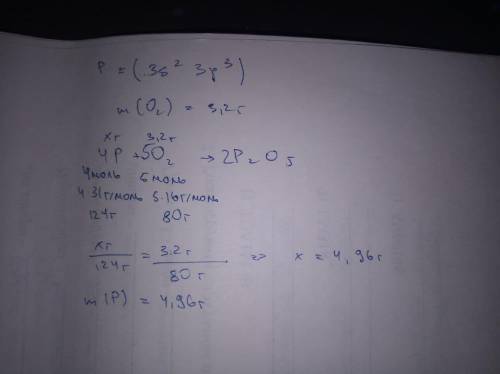 P = (.3s² 3p³)
m(O₂) = 3,2г
xг 3,2г
4P + 5O₂ → 2P₂O₅
4моль 5моль
4·31г/моль 5·16г/моль
124г 80г
xг/124г = 3.2г/80г => x = 4,96г
m(P) = 4,96г